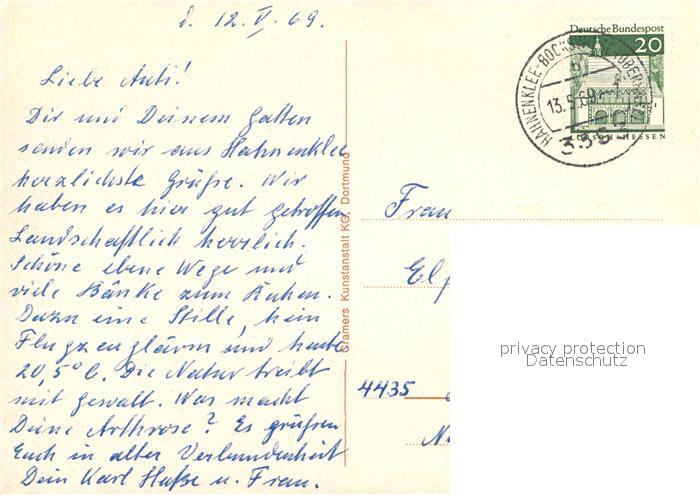 d. 12. V. 69.
Liebe Anti!
Dir und Deinem Gatten
senden wir aus Hahnenklee
herzlichste Grüße. Wir
haben es hier gut getroffen
Landschaftlich herrlich.
Schöne ebene Wege und
viele Bänke zum Ruhen.
Dazu eine Stille, kein
Flugzeuglärm und heute
20,5° C. Die Natur treibt
mit gewalt. Was macht
Deine Arthrose? Es grüßen
Euch in alter Verbundenheit
Dein Karl u. Frau.
Cramers Kunstanstalt KG, Dortmund
Deutsche Bundespost
20
LORSCH/HESSEN
HAHNENKLEE-BOCKSWIESE
13.5.69
Frau
4435
privacy protection
Datenschutz